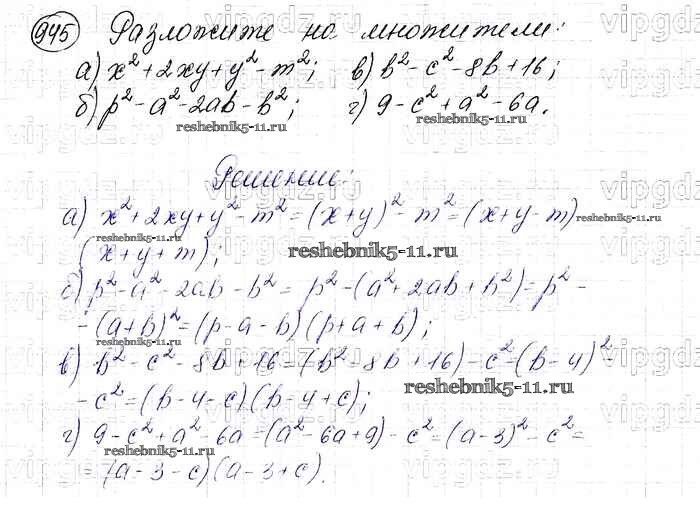 945 Разложите на множители:
а) x²+2xy+y²-m²; в) b²-c²-8b+16;
б) p²-a²-2ab-b²; г) 9-c²+a²-6a.
reshebnik5-11.ru reshebnik5-11.ru
Решение:
а) x²+2xy+y²-m²=(x+y)²-m²=(x+y-m) reshebnik5-11.ru
reshebnik5-11.ru
(x+y+m); reshebnik5-11.ru
б) p²-a²-2ab-b²= p²-(a²+2ab+b²)=p²-
-(a+b)²=(p-a-b)(p+a+b);
reshebnik5-11.ru
в) b²-c²-8b+16=(b²-8b+16)-c²=(b-4)²-
-c²=(b-4-c)(b-4+c); reshebnik5-11.ru
г) 9-c²+a²-6a=(a²-6a+9)-c²=(a-3)²-c²=
reshebnik5-11.ru
=(a-3-c)(a-3+c).
vipgdz.ru